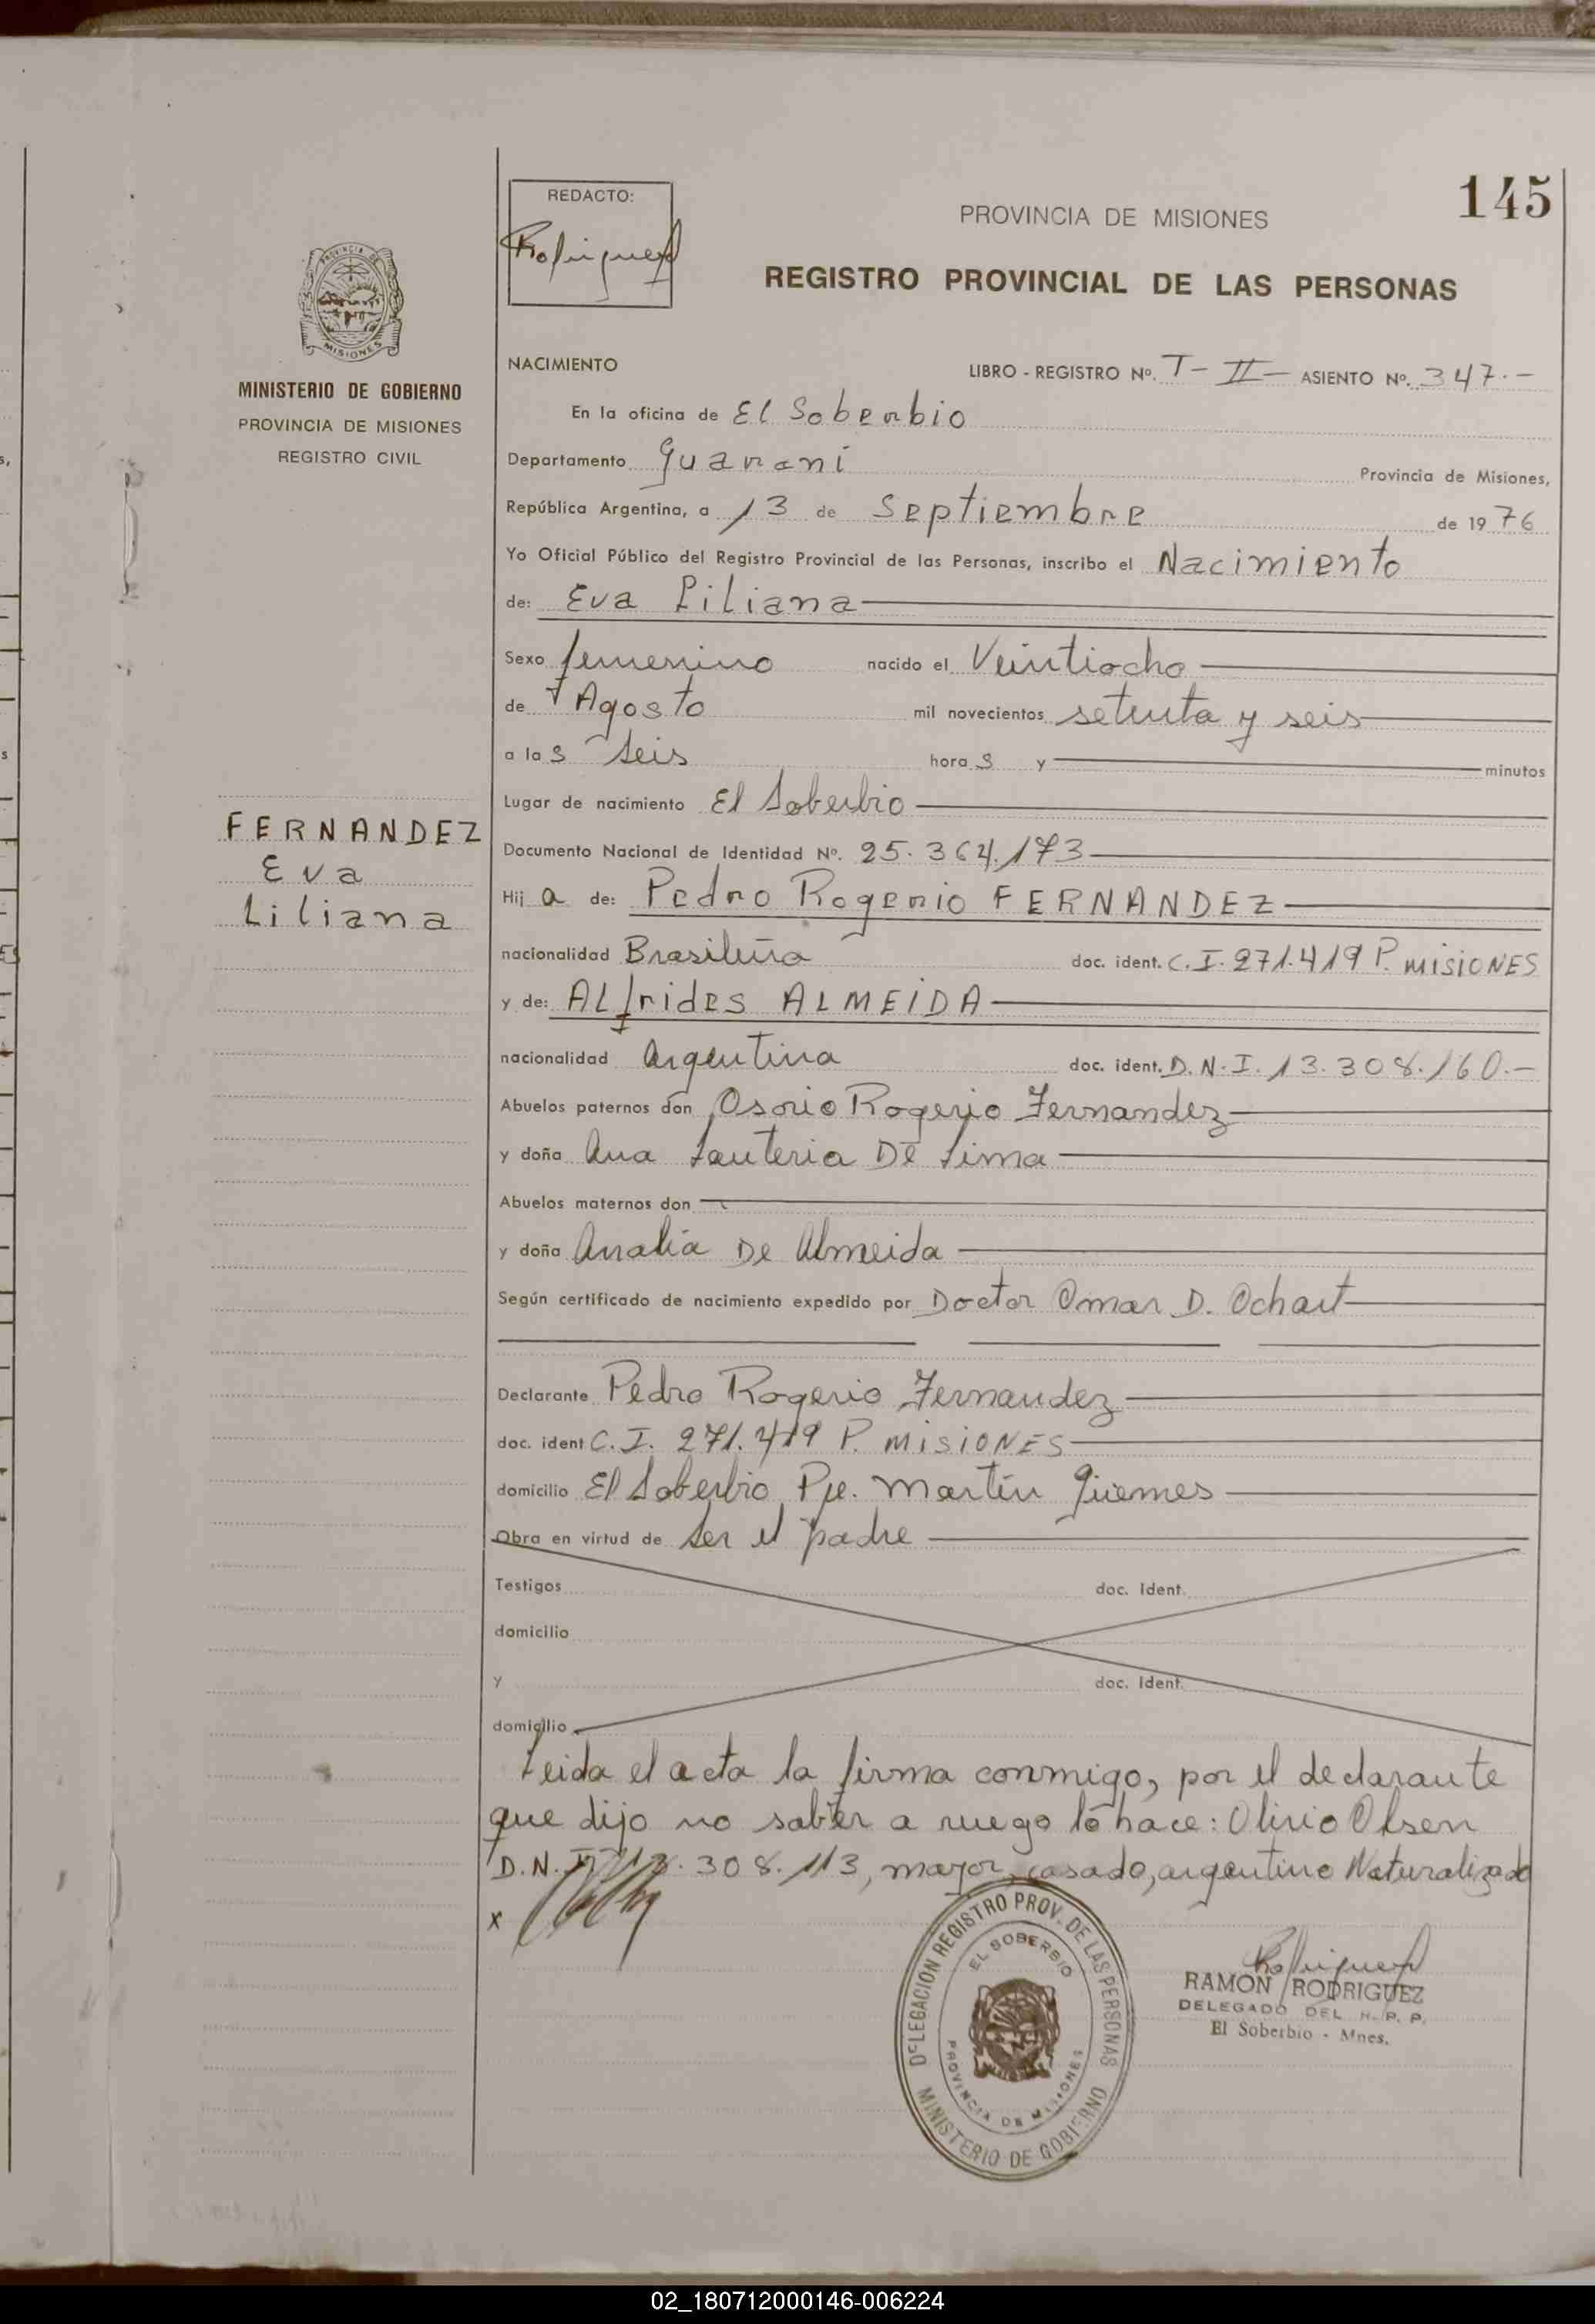 145
REDACTO:
Rodriguez
PROVINCIA DE MISIONES
REGISTRO PROVINCIAL DE LAS PERSONAS
PROVINCIA DE
MISIONES
MINISTERIO DE GOBIERNO
PROVINCIA DE MISIONES
REGISTRO CIVIL
NACIMIENTO
LIBRO - REGISTRO Nº. T- II - ASIENTO Nº. 347.-
En la oficina de El Soberbio
Departamento Guarani Provincia de Misiones,
República Argentina, a 13 de Septiembre de 1976
Yo Oficial Público del Registro Provincial de las Personas, inscribo el Nacimiento
de: Eva Liliana
Sexo femenino nacido el Veintiocho
de Agosto mil novecientos setenta y seis
a las seis horas y minutos
Lugar de nacimiento El Soberbio
FERNANDEZ
Eva
Liliana
Documento Nacional de Identidad Nº. 25.364.173
Hija de: Pedro Rogerio FERNANDEZ
nacionalidad Brasileña doc. ident. C.I. 271.419 P. MISIONES
y de: ALfrides ALMEIDA
nacionalidad Argentina doc. ident. D.N.I. 13.308.160.-
Abuelos paternos don Osorio Rogerio Fernandez
y doña Ana Lauteria De Lima
Abuelos maternos don
y doña Analia De Almeida
Según certificado de nacimiento expedido por Doctor Omar D. Ochart
Declarante Pedro Rogerio Fernandez
doc. ident C.I. 271.419 P. MISIONES
domicilio El Soberbio Pje. Martin Güemes
Obra en virtud de ser el padre
Testigos doc. Ident.
domicilio
y doc. Ident.
domicilio
Leida el acta la firma conmigo, por el declarante
que dijo no saber a ruego lo hace: Olirio Olsen
D.N.I. 308.113, mayor, casado, argentino Naturalizado
x
DELEGACION REGISTRO PROV. DE LAS PERSONAS
EL SOBERBIO
PROVINCIA DE MISIONES
MINISTERIO DE GOBIERNO
Rodriguez
RAMON RODRIGUEZ
DELEGADO DEL R. P. P.
El Soberbio - Mnes.
02_180712000146-006224